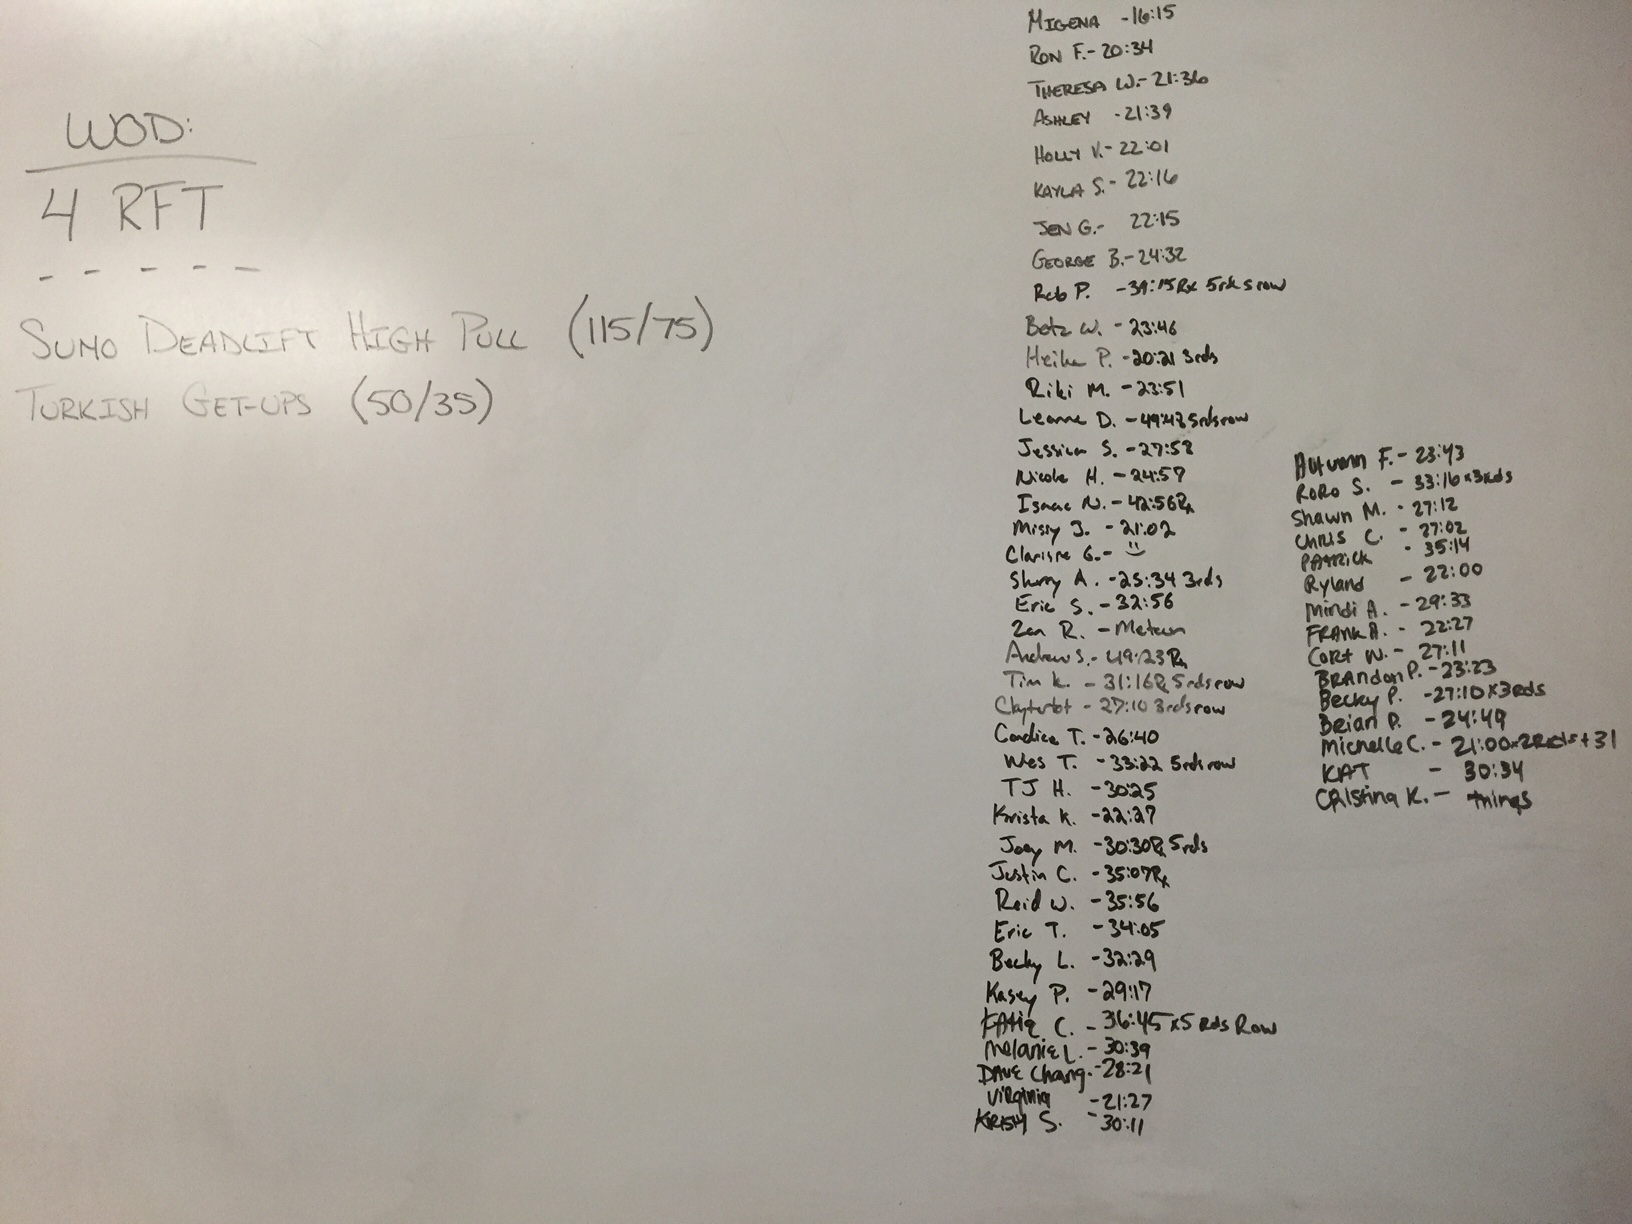 WOD:
4 RFT
- - - - -
SUMO DEADLIFT HIGH PULL (115/75)
TURKISH GET-UPS (50/35)
MIGENA -16:15
RON F.- 20:34
THERESA W.- 21:36
ASHLEY -21:39
HOLLY V.- 22:01
KAYLA S.- 22:16
JEN G.- 22:15
GEORGE B.- 24:32
Rob P. -39:15Rx 5rds row
Betz W. - 23:46
Heike P. -20:21 3rds
Riki M. -23:51
Leanne D. -49:48 5rds row
Jessica S. -27:58
Nicole H. -24:57
Isaac N. -42:56Rx
Missy J. -21:02
Clarisse G.- :)
Sherry A. -25:34 3rds
Eric S. -32:56
Zen R. - Metcon
Andrew S.- 49:23Rx
Tim K. - 31:16Rx 5rds row
- 27:10 3rds row
Candice T. -26:40
Wes T. -33:22 5rds row
TJ H. -30:25
Krista K. -22:27
Joey M. -30:30Rx 5rds
Justin C. -35:07Rx
Reid W. -35:56
Eric T. -34:05
Becky L. -32:29
Kasey P. -29:17
C. - 36:45 x5 Rds Row
Melanie L. - 30:39
DAVE Chang. -28:21
Virginia -21:27
KRISty S. -30:11
Autumn F.- 23:43
RoRo S. - 33:16 x3Rds
Shawn M. - 27:12
CHRIS C. - 27:02
PATRICK - 35:14
Ryland - 22:00
Mindi A. - 29:33
FRANK A. - 22:27
CORt W. - 27:11
BRAndon P. -23:23
Becky P. -27:10x3Rds
Brian D. - 24:49
Michelle C. - 21:00x2Rds+31
KAT - 30:34
CRIStina K. - things